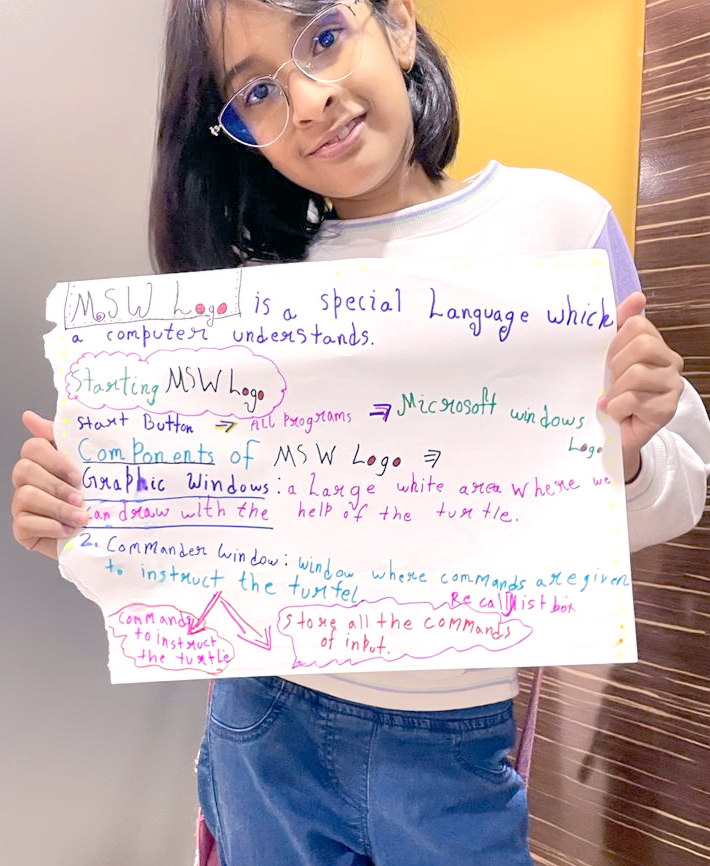 M.S W Logo is a special Language which
a computer understands.
Starting MSW Logo
Start Button ⇒ All Programs ⇒ Microsoft windows
Logo
Components of MSW Logo ⇒
Graphic Windows: a Large white area where we
can draw with the help of the turtle.
2. Commander window: window where commands are given
to instruct the turtel
Recall list box
Commands
to instruct
the turtle
Store all the commands
of input.